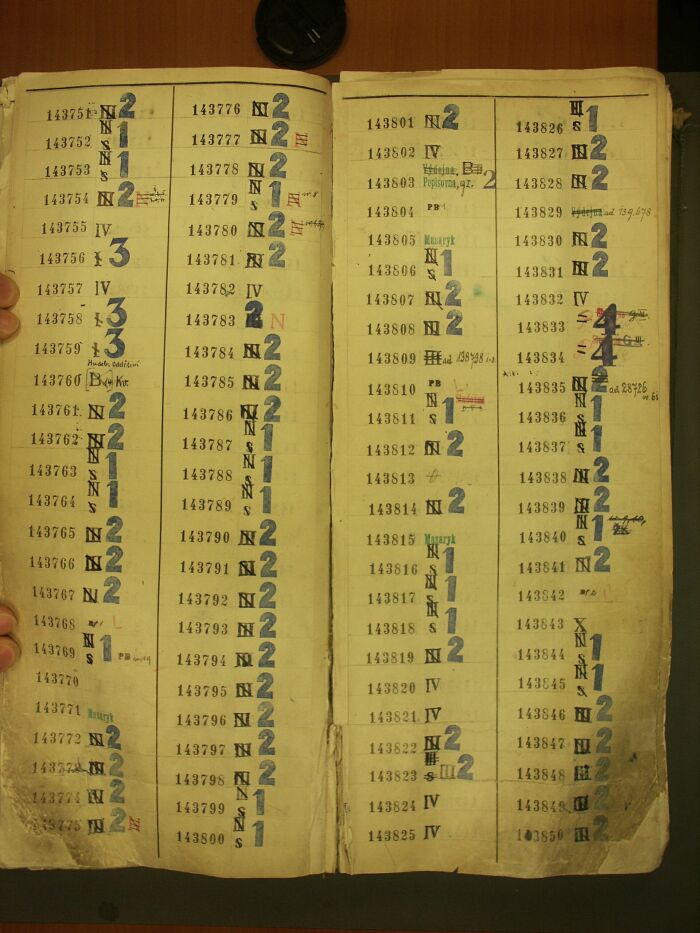 143751 N 2
143752 N S 1
143753 N S 1
143754 N 2 III
143755 IV
143756 1 3
143757 IV
143758 1 3
143759 1 3
Hudeb. oddělení
143760 B Kr.
143761 N 2
143762 N 2
143763 N S 1
143764 N S 1
143765 N 2
143766 N 2
143767 N 2
143768 L
143769 N S 1 PB
143770
143771 Masaryk
143772 N 2
143773 N 2
143774 N 2
143775 N 2 III
143776 N 2
143777 N 2 III
143778 N 2
143779 N S 1 III
143780 N 2 III
143781 N 2
143782 IV
143783 2 N
143784 N 2
143785 N 2
143786 N 2
143787 N S 1
143788 N S 1
143789 N S 1
143790 N 2
143791 N 2
143792 N 2
143793 N 2
143794 N 2
143795 N 2
143796 N 2
143797 N 2
143798 N 2
143799 N S 1
143800 N S 1
143801 N 2
143802 IV
Výdejna, B III
143803 Popisovna, gz. 2
143804 PB
143805 Masaryk
143806 N S 1
143807 N 2
143808 N 2
143809 III ad 138798
143810 PB L
143811 N S 1
143812 N 2
143813
143814 N 2
143815 Masaryk
143816 N S 1
143817 N S 1
143818 N S 1
143819 N 2
143820 IV
143821 IV
143822 N 2
143823 III S III 2
143824 IV
143825 IV
143826 III S 1
143827 N 2
143828 N 2
143829 Výdejna ad 139,678
143830 N 2
143831 N 2
143832 IV
143833 4
143834 4
143835 N 2 ad 28726
143836 N S 1
143837 N S 1
143838 N 2
143839 N 2
143840 N S 1
143841 N 2
143842 L
143843 X
143844 N S 1
143845 N S 1
143846 N 2
143847 N 2
143848 N 2
143849 N 2
143850 N 2